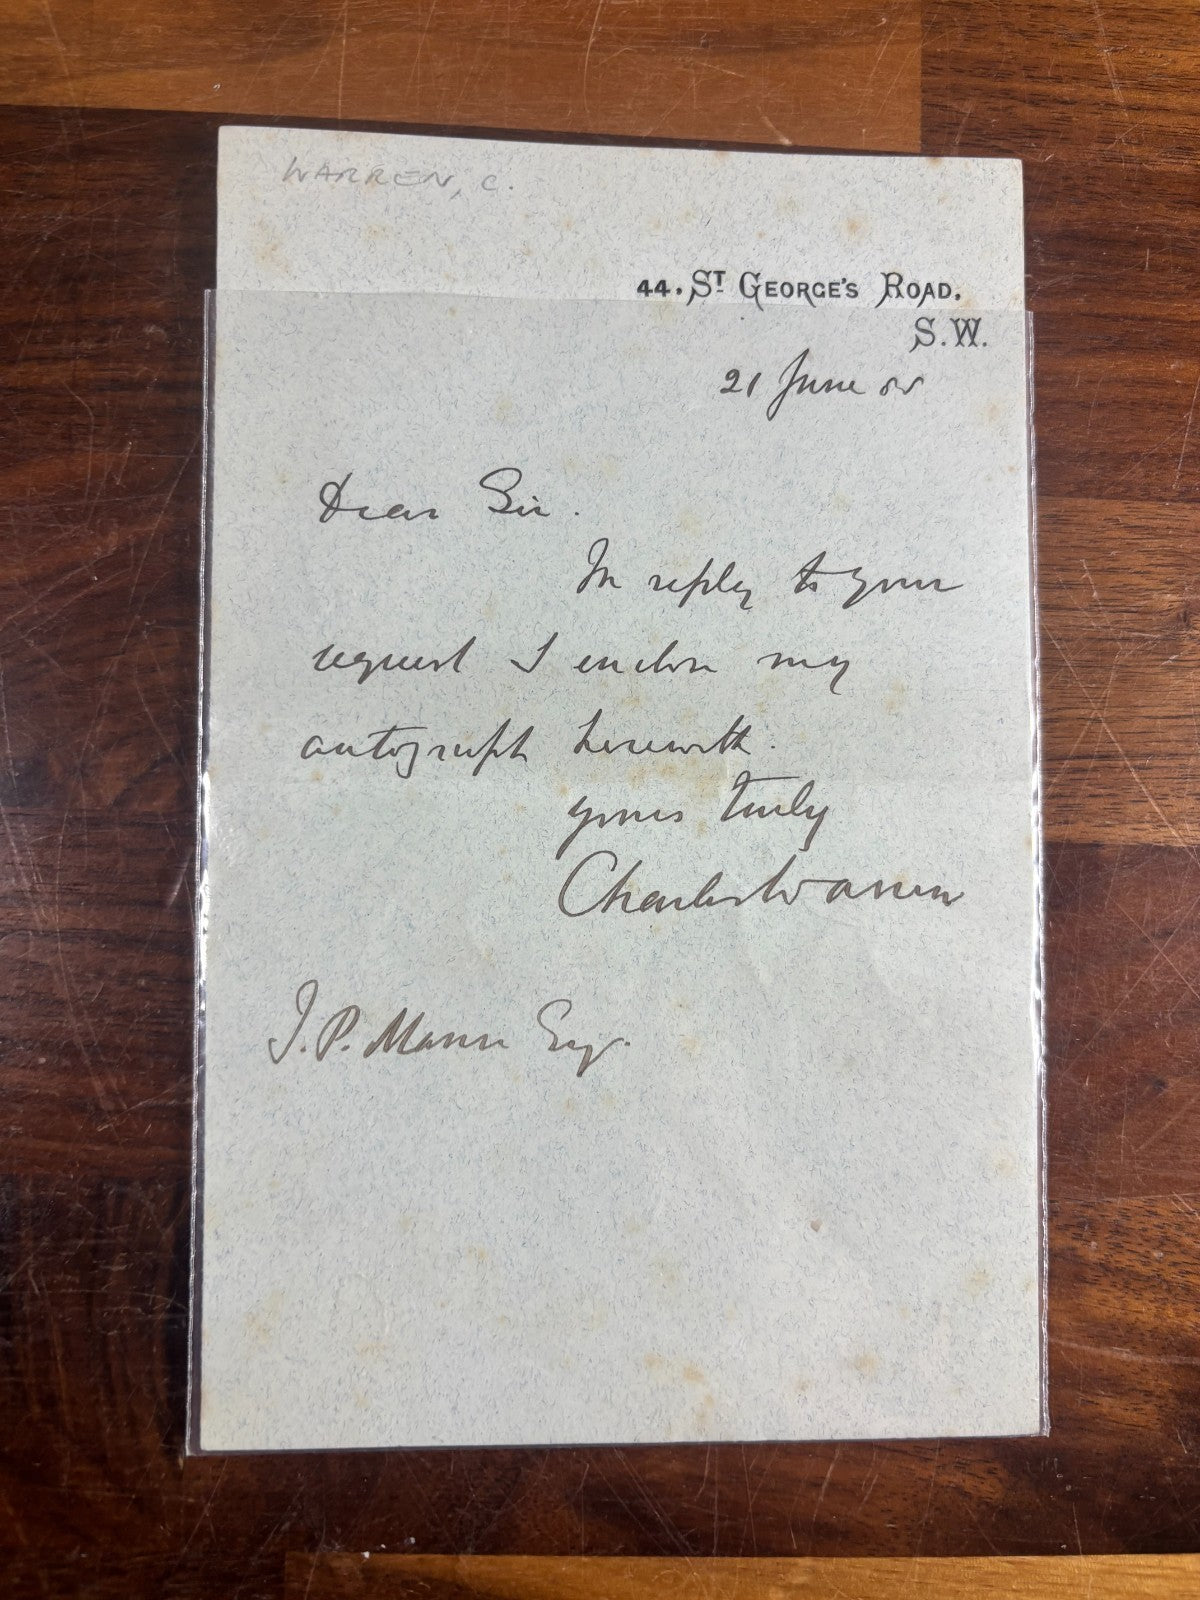 WARREN, C.
44. St George's Road,
S.W.
21 June 88
Dear Sir.
In reply to your
request I enclose my
autograph herewith.
yours truly
Charles Warren
J. P. Mann Esq.